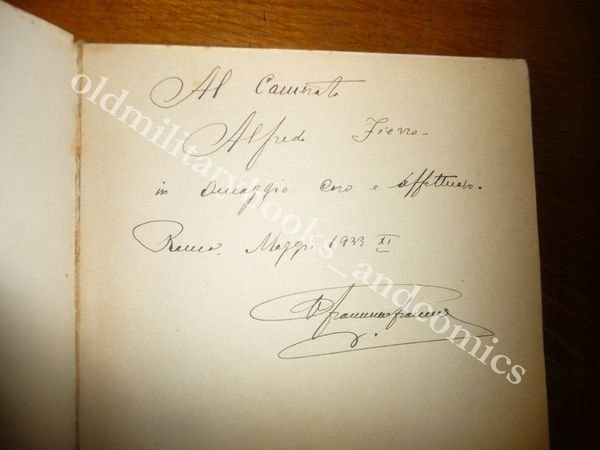 Al Camerata
Alfredo Fierro -
in omaggio caro e affettuoso.
Roma, Maggio 1933 XI
oldmilitarybooks_andcomics